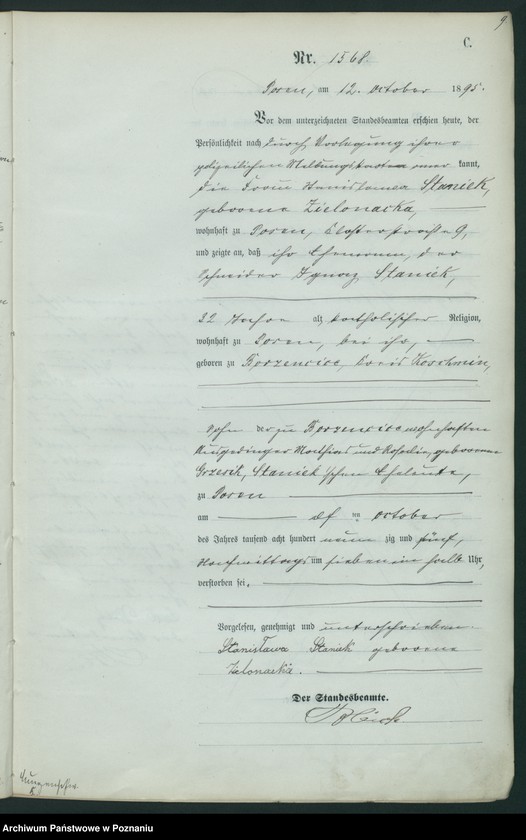 9
C.
Nr. 1568.
Posen, am 12. October 1895.
Vor dem unterzeichneten Standesbeamten erschien heute, der
Persönlichkeit nach durch Vorlegung ihrer
polizeilichen Meldungskarte kannt,
die Frau Stanislawa Staniek,
geborene Zielonacka,
wohnhaft zu Posen, Klosterstraße 9,
und zeigte an, daß ihr Ehemann, der
Schneider Ignaz Staniek,
32 Jahre alt, katholischer Religion,
wohnhaft zu Posen, bei ihr,
geboren zu Borzencice, Kreis Koschmin,
Sohn der zu Borzencice wohnhaften
Ausgedinger Mathias und geborenen
Grzesik, Staniek'schen Eheleute,
zu Posen
am elf ten October
des Jahres tausend acht hundert neun zig und fünf,
Nachmittags um sieben ein halb Uhr,
verstorben sei.
Vorgelesen, genehmigt und unterschrieben.
Stanisława Staniek geborene
Zielonacka.
Der Standesbeamte.
Lungenschw.
5
Archiwum Państwowe w Poznaniu